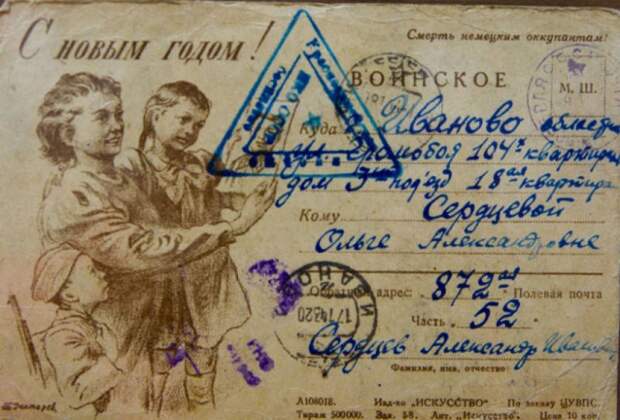 С НОВЫМ ГОДОМ!
Смерть немецким оккупантам!
ВОИНСКОЕ
М. Ш.
Куда Иваново области
ул. Громобоя 104й квартира
дом 3й под'езд 18ая квартира
Кому Сердцевой
Ольге Александровне
Обратный адрес: 872ая Полевая почта
Часть 52
Сердцев Александр
Фамилия, имя, отчество
А108018. Изд-во "ИСКУССТВО" По заказу ЦУВПС.
Тираж 500000. Зак. 58. Лит. "Искусство". Цена 10 коп.